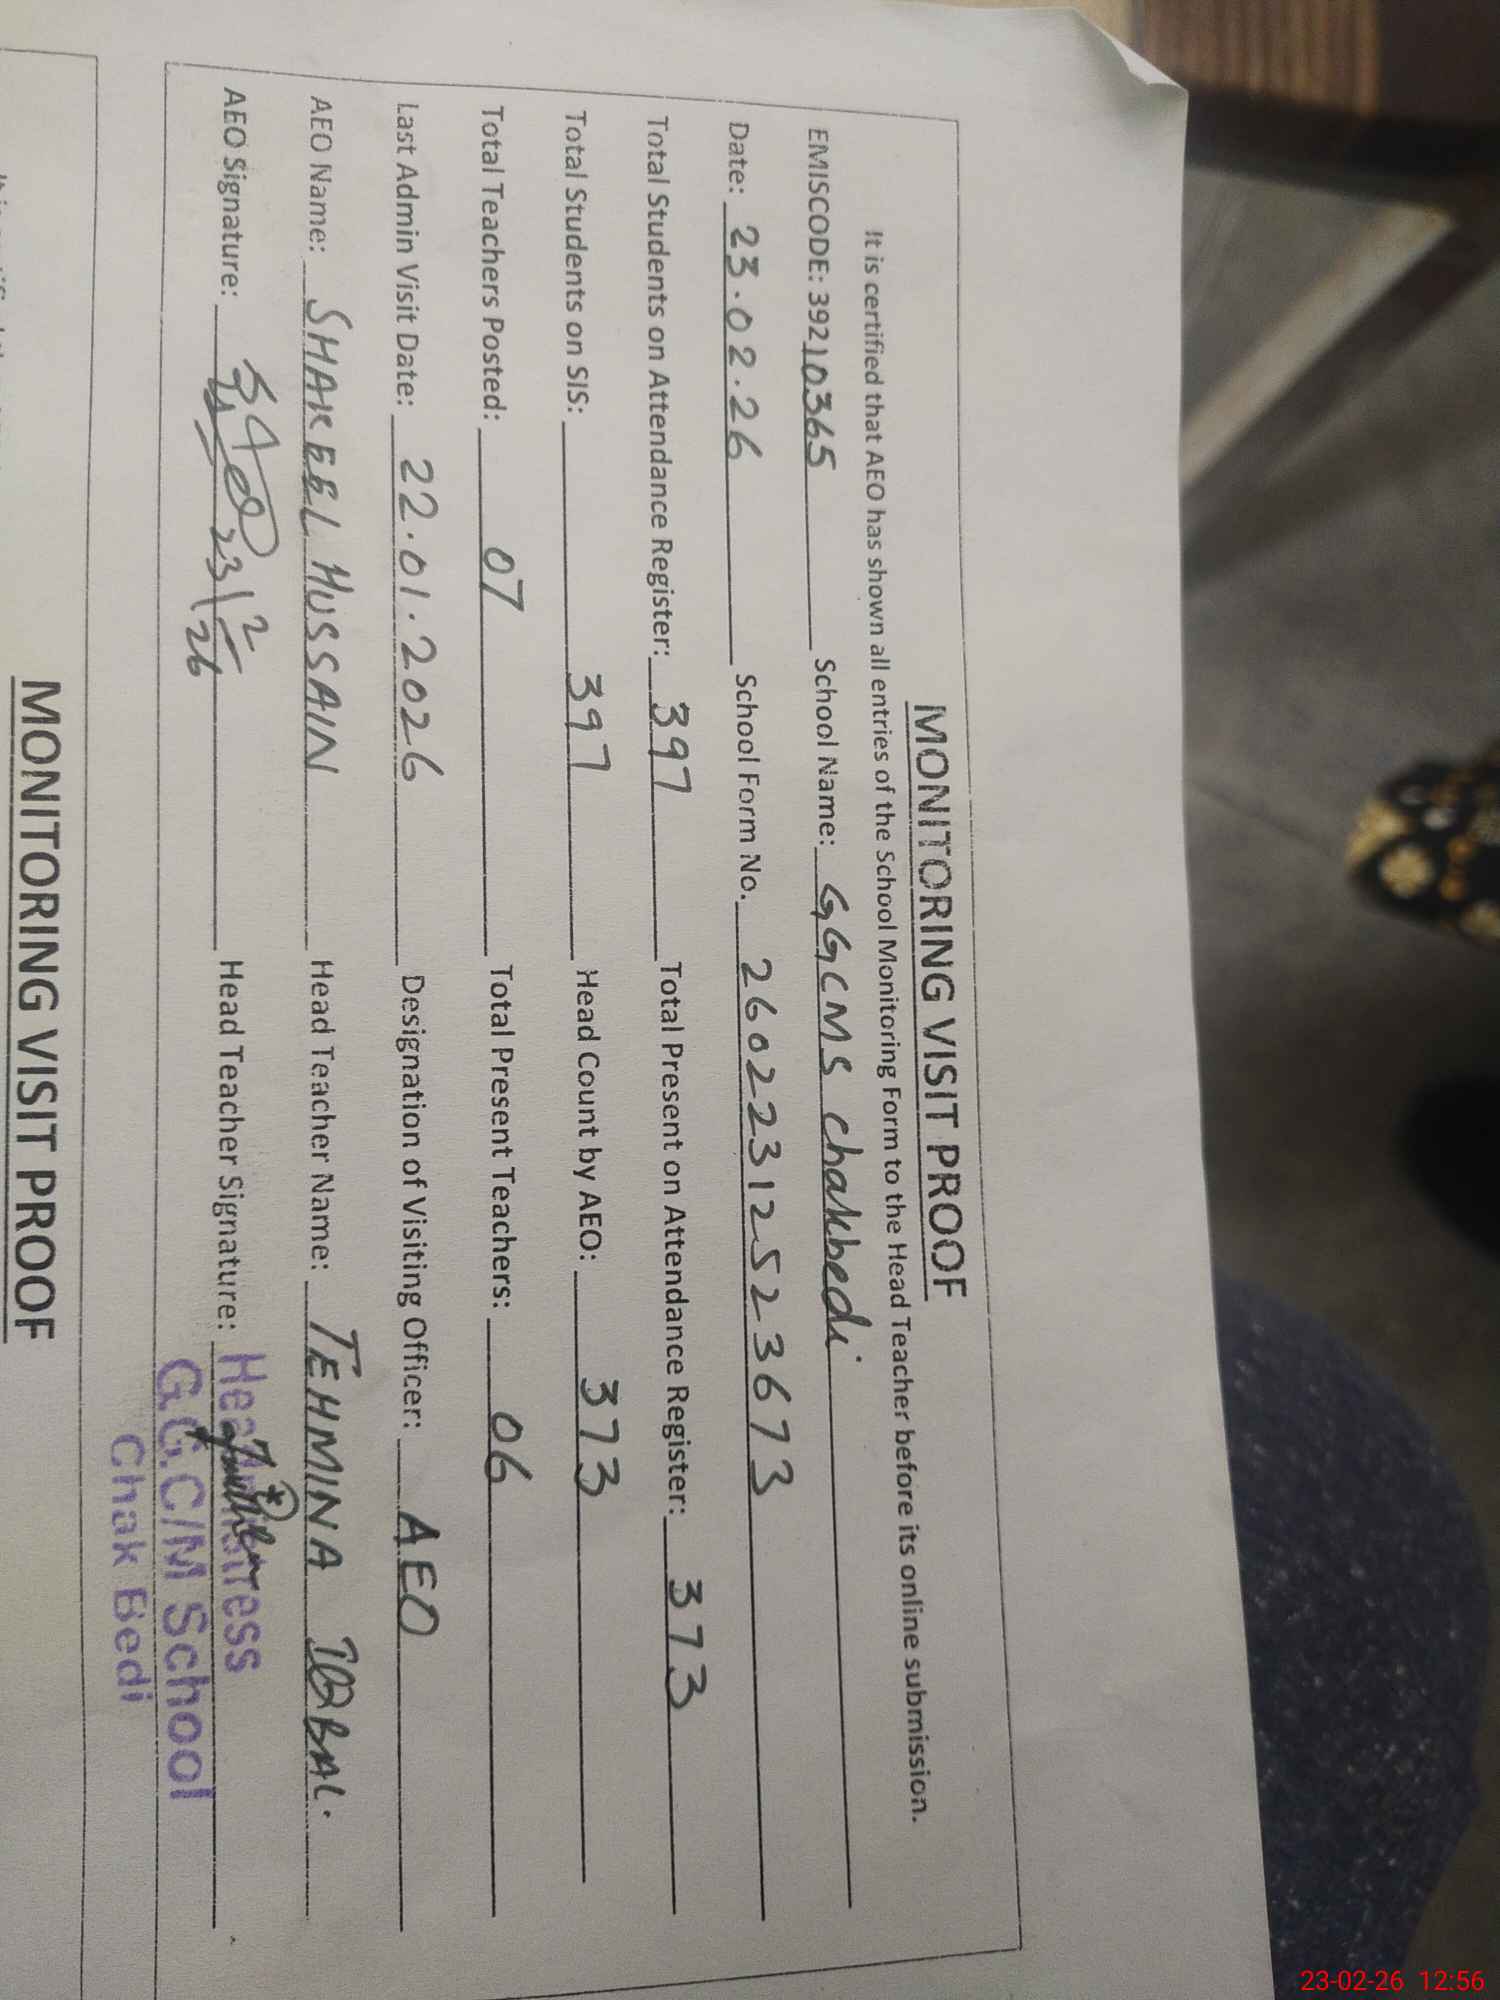 MONITORING VISIT PROOF
It is certified that AEO has shown all entries of the School Monitoring Form to the Head Teacher before its online submission.
EMISCODE: 39210365 School Name: GGCMS chakbedi
Date: 23.02.26 School Form No. 2602231252 3673
Total Students on Attendance Register: 397 Total Present on Attendance Register: 373
Total Students on SIS: 397 Head Count by AEO: 373
Total Teachers Posted: 07 Total Present Teachers: 06
Last Admin Visit Date: 22.01.2026 Designation of Visiting Officer: AEO
AEO Name: SHAKEEL HUSSAIN Head Teacher Name: TEHMINA IQBAL.
AEO Signature: 23/2/26 Head Teacher Signature:
Headmistress
G.G.C/M School
Chak Bedi
MONITORING VISIT PROOF
23-02-26 12:56